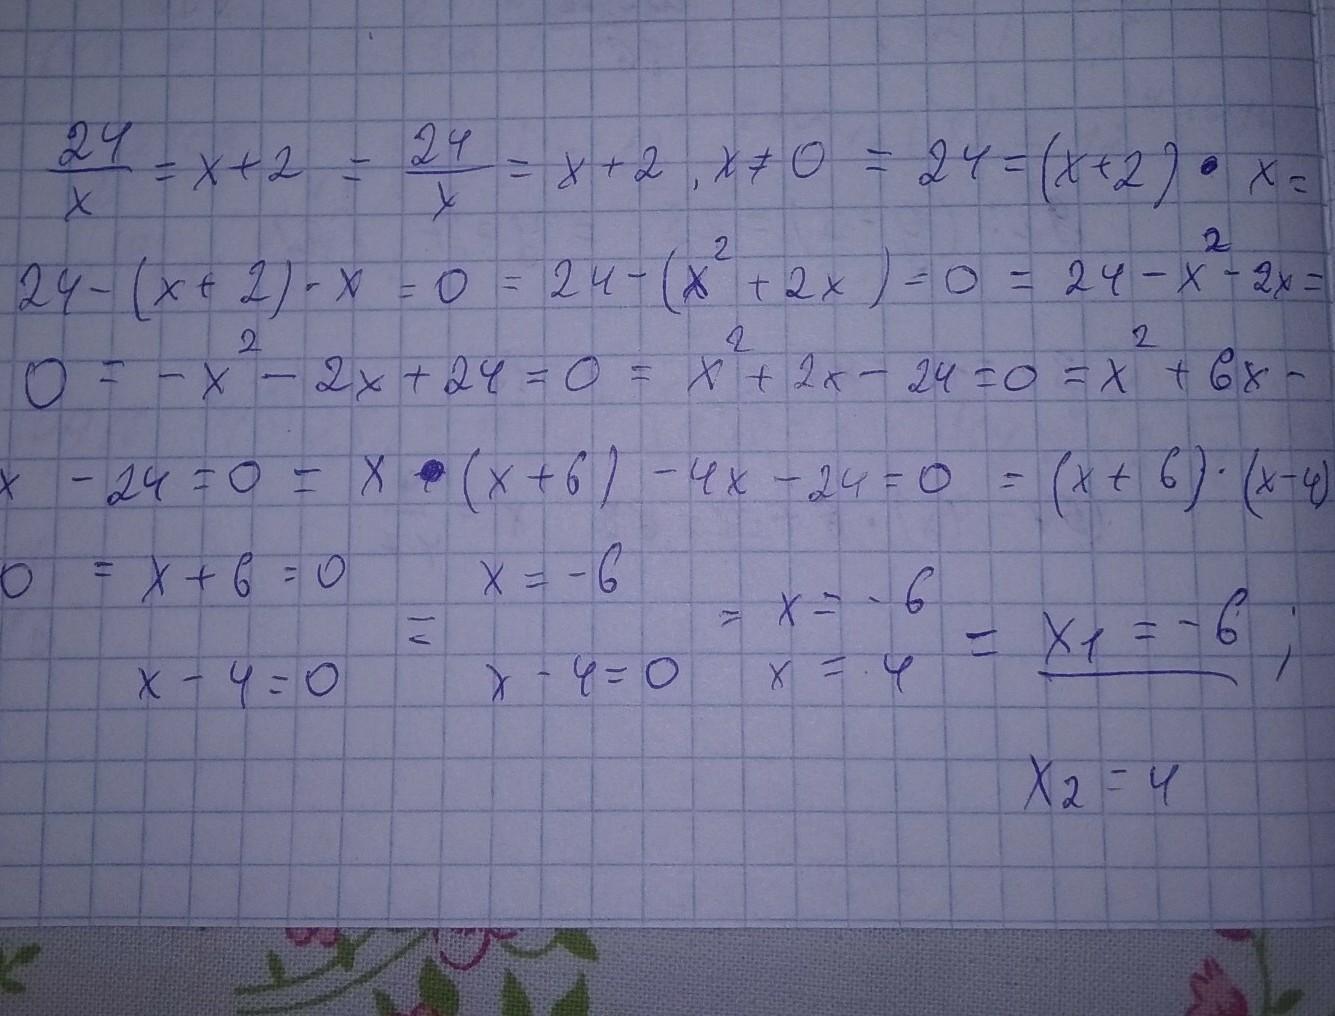 24/x = x+2 = 24/x = x+2, x≠0 = 24=(x+2)•x=
24-(x+2)·x=0 = 24-(x²+2x)=0 = 24-x²-2x=
0 = -x²-2x+24=0 = x²+2x-24=0 = x²+6x-
x -24=0 = x•(x+6)-4x-24=0 = (x+6)·(x-4)
0 = x+6=0 = x=-6 = x=-6 = x1=-6;
x-4=0 x-4=0 x=4
x2=4